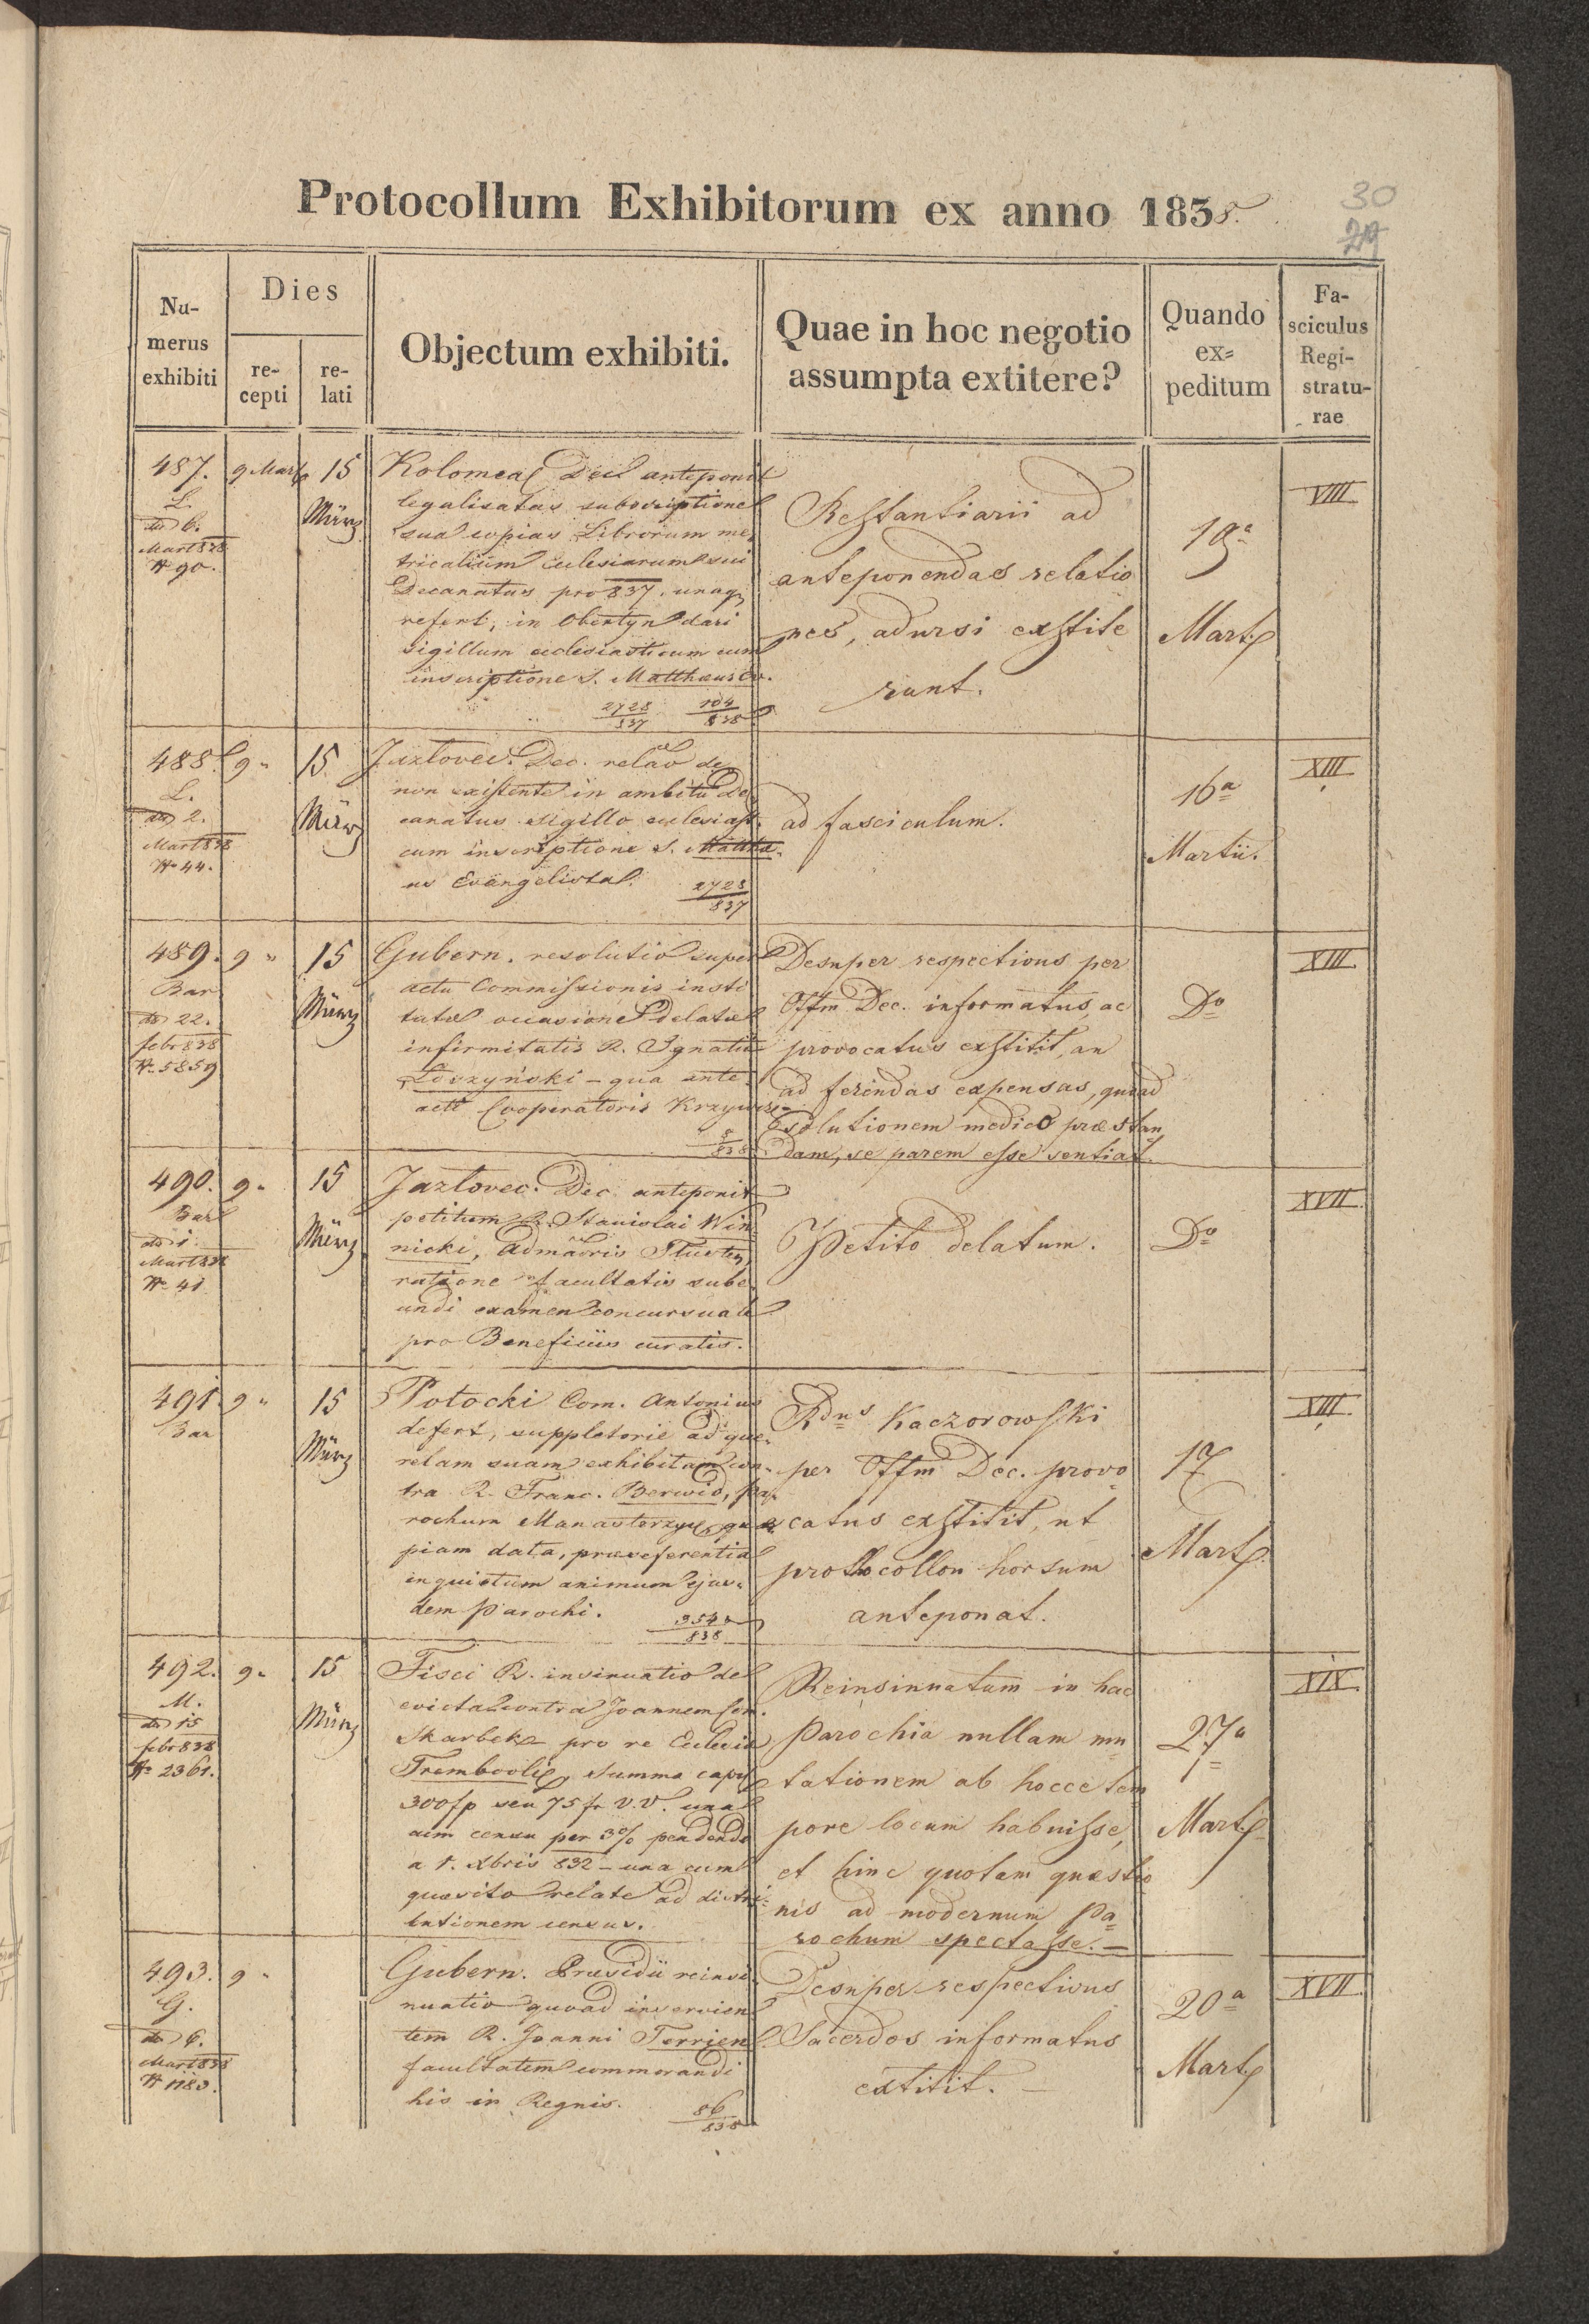 Protocollum Exhibitorum ex anno 1838.
30
29
Numerus exhibiti
Dies
recepti
relati
Objectum exhibiti.
Quae in hoc negotio
assumpta extitere?
Quando
ex=
peditum
Fa-
sciculus
Regi-
stratu-
rae
487.
L.
do 6.
Mart 838
No 90.
9 Mart
15
März
Kolomeae Dec. anteponit
legalisatas subscriptione
sua copias Librorum me
tricalium Ecclesiarum sui
Decanatus pro 837. unaq
refert, in Obertyn dari
sigillum ecclesiasticum cum
inscriptione S. Matthaeus Ev.
2728
837
104
838
Restantiarii ad
anteponendas relatio
nes, adursi exstite
runt.
19a
Mart.
VIII
488.
L.
do 2.
Mart 838
No 44.
9 "
15
März
Jazlovec. Dec. relaō de
non existente in ambitu De
canatus sigillo ecclesiast.
cum inscriptione S. Matthae
us Evangelista.
2728
837
ad fasciculum.
16a
Martii.
XIII.
489.
Bar
do 22.
febr 838
No 5859
9 "
15
März
Gubern. resolutio super
actu Commissionis insti
tutae occasione delatae
infirmitatis R. Ignatii
Loszyński – qua ante
acti Cooperatoris Krzywcze
838
Desuper respectivus per
Offm Dec. informatus, ac
provocatus exstitit, an
ad ferendas expensas, quoad
solutionem medico praestan
dam, se parem esse sentiat.
Do
XIII.
490.
Bar
do 1.
Mart 838
No 41
9 "
15
März
Jazlovec. Dec. anteponit
petitum R. Stanislai Win
nicki, Admāoris Tluste,
ratione facultatis sube
undi examen concursuale
pro Beneficiis curatis.
Petito delatum.
Do
XVII
491.
Bar
9 "
15
März
Potocki Com. Antonius
defert, suppletorie ad que-
relam suam exhibitam con-
tra R. Franc. Berwid, pa-
rochum Monasterzys,
piam data, praeseferentia
inquietum animum ejus-
dem parochi.
354
838
Rdns Kaczorowski
per Offm Dec. provo
catus exstitit, ut
prothocollon horsum
anteponat.
17
Mart.
XIII.
492.
M.
do 15
febr 838
No 2361.
9 "
15
März
Fisci R. insinuatio de
evicta contra Joannem Com.
Skarbek pro re Ecclesiae
Trembovlie, summa capit
300 fp seu 75 fr V.V. una
cum censu per 3% pendendo
a 1. Xbris 832 – una cum
quaesito relate ad distri-
butionem census.
Reinsinuatum in hac
Parochia nullam mu
tationem ab hocce tem
pore locum habuisse,
et hinc quotam quaestio
nis ad modernum Pa
rochum spectasse. —
27a
Mart.
XIX.
493.
G.
do 6.
Mart 838
No 1183.
9 "
Gubern. Praesidii reinsi
nuatio quoad inservien
tem R. Joanni Terrien
facultatem commorandi
his in Regnis.
86
838
Desuper respectivus
Sacerdos informatus
extitit. —
20a
Mart.
XVII.